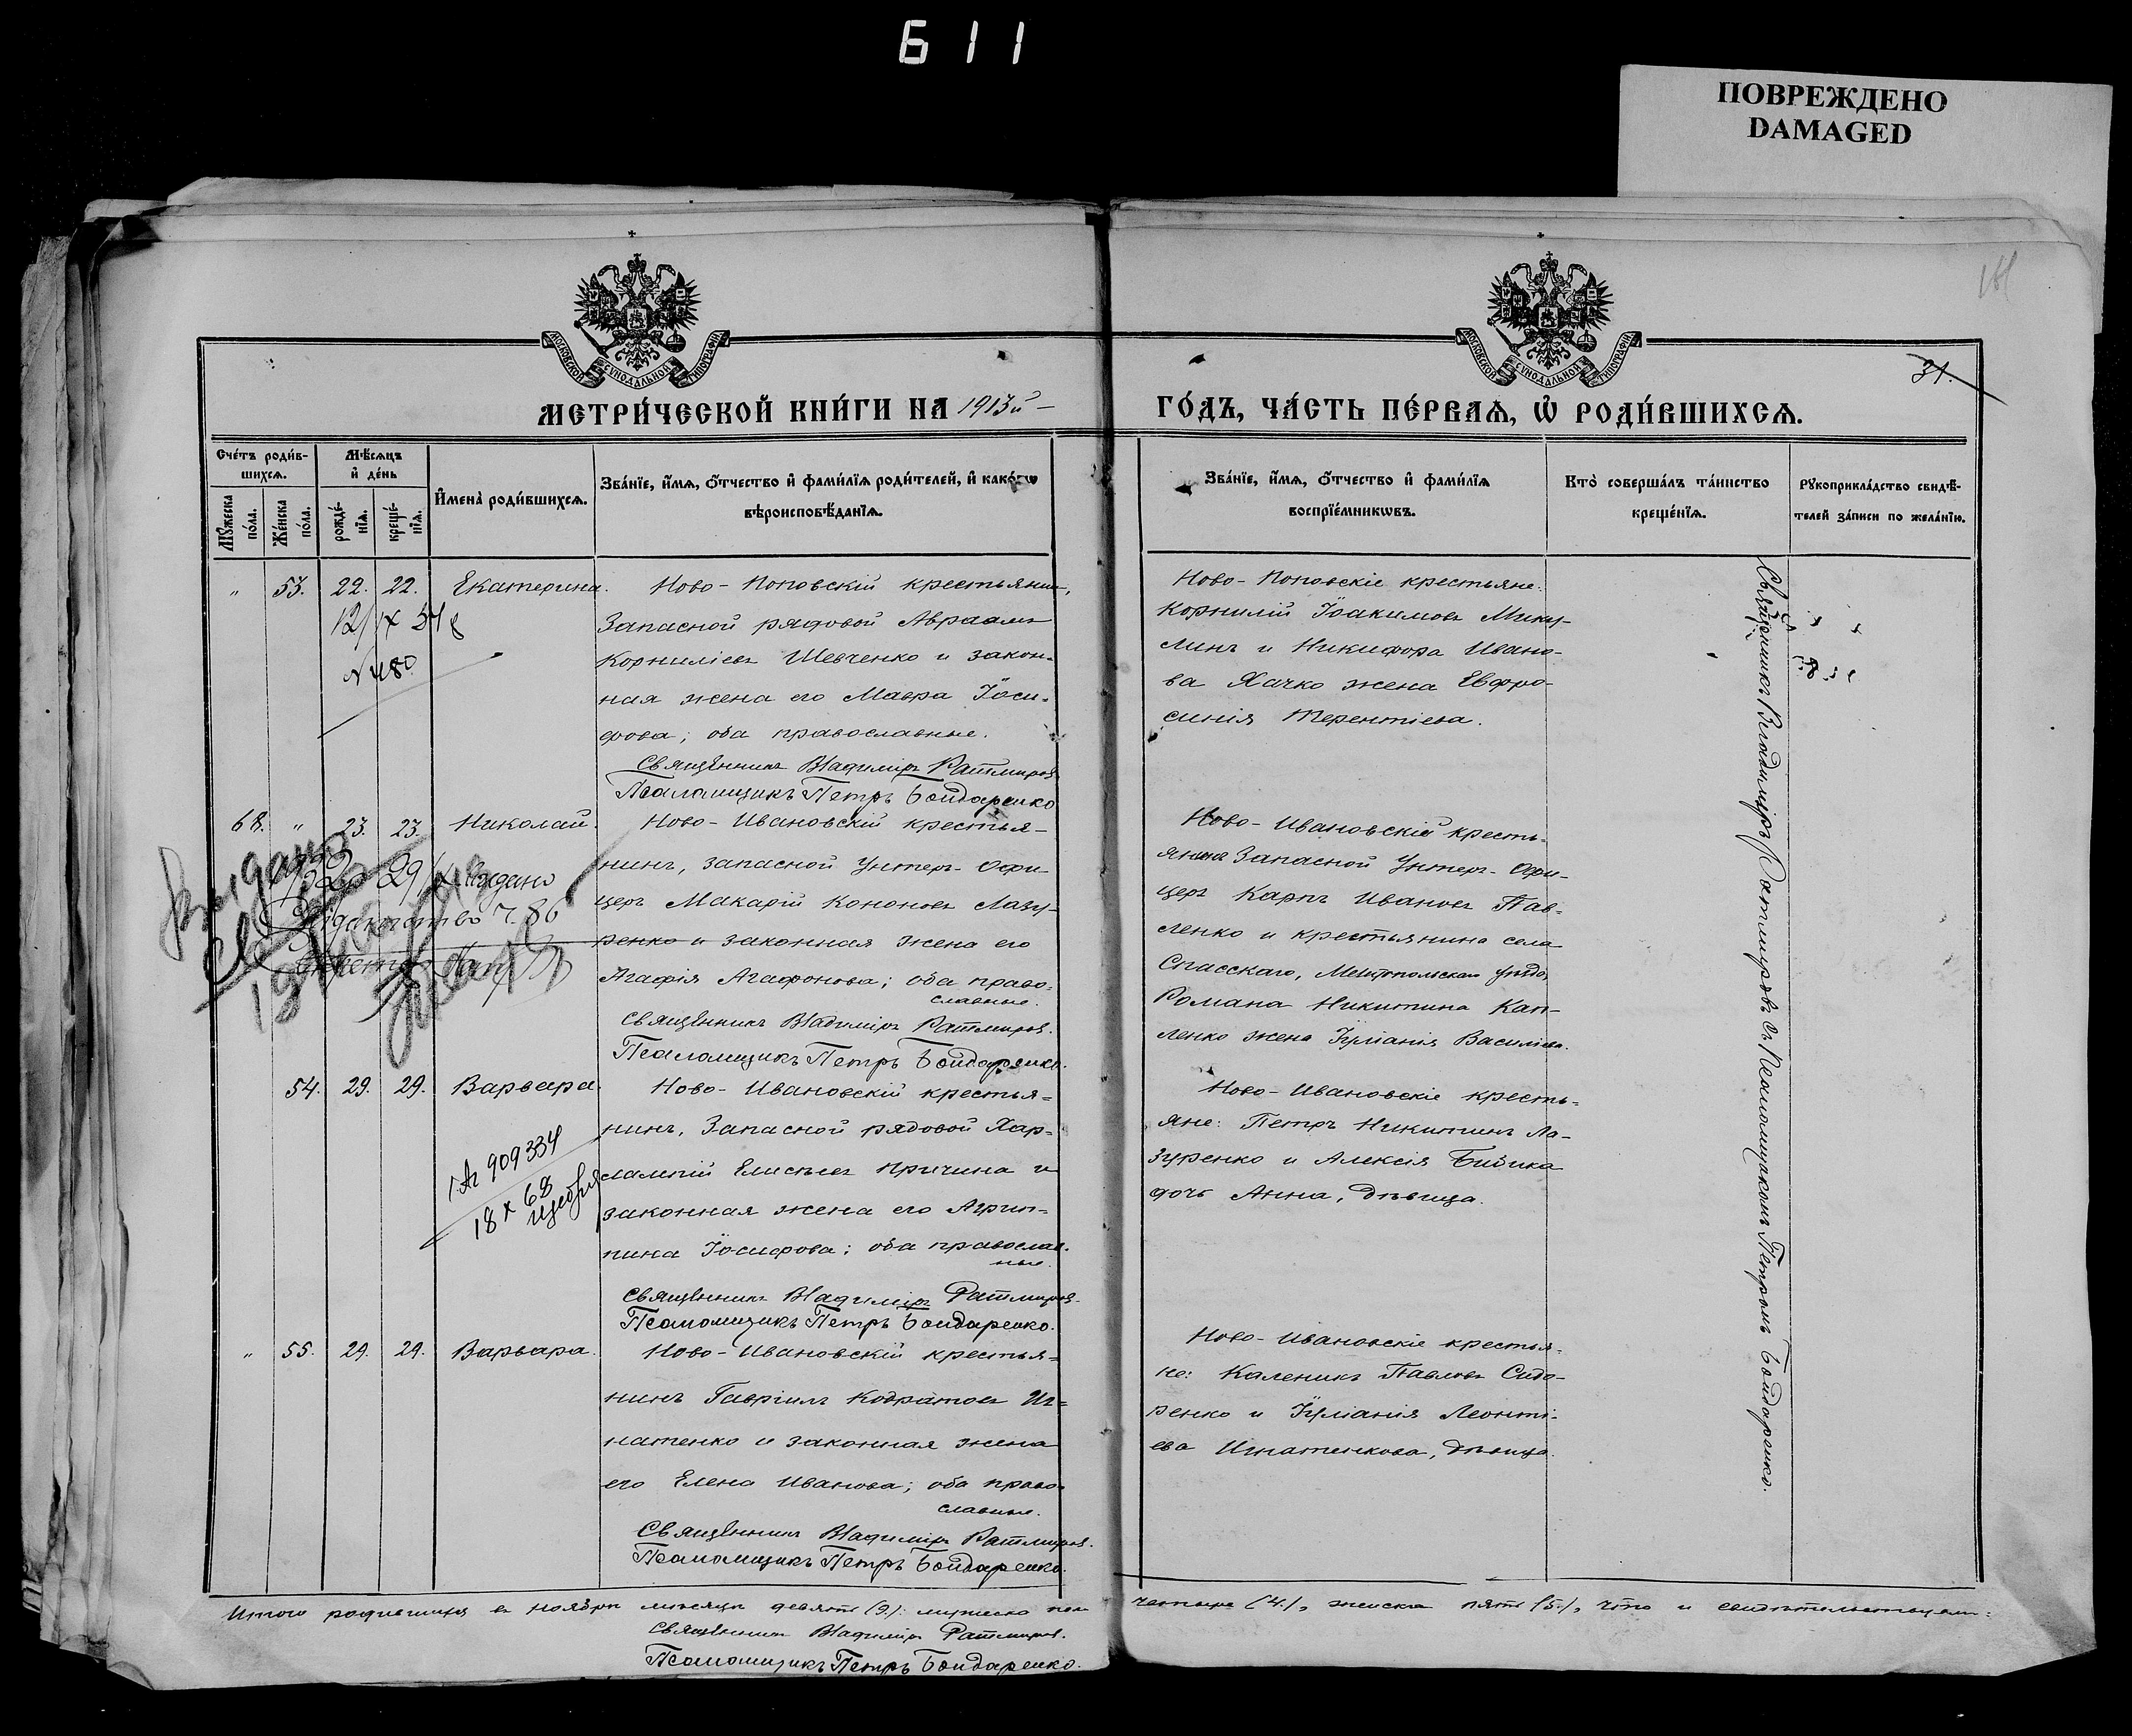 611
ПОВРЕЖДЕНО
DAMAGED
МОСКОВСКОЙ СѴНОДАЛЬНОЙ ТИПОГРАФІИ
МОСКОВСКОЙ СѴНОДАЛЬНОЙ ТИПОГРАФІИ
31.
МЕТРИ́ЧЕСКОЙ КНИ́ГИ НА 1913й — ГО́ДЪ, ЧА́СТЬ ПЕ́РВАѦ, Ѡ҆ РОДИ́ВШИХСѦ.
Сче́тъ роди́в-
шихсѧ.
Мꙋ́жеска по́ла.
Же́нска по́ла.
Мѣ́сѧцъ
и҆ де́нь
рожде́-
нїѧ.
креще́-
нїѧ.
И҆мена̀ роди́вшихсѧ.
Зва́нїе, и҆́мѧ, ѻ҆́тчество и҆ фами́лїѧ роди́телей, и҆ како́гѡ
вѣроисповѣ́данїѧ.
Зва́нїе, и҆́мѧ, ѻ҆́тчество и҆ фами́лїѧ
воспрїе́мникѡвъ.
Кто̀ соверша́лъ та́инство
креще́нїѧ.
Рꙋкоприкла́дство свидѣ́-
телей за́писи по жела́нїю.
" 53. 22. 22. Екатерина. Ново-Поповскій крестьянин,
Запасной рядовой Авраамъ
Корниліевъ Шевченко и закон-
ная жена его Мавра Іоси-
фова; оба православные.
Священникъ Владиміръ Ратмировъ
Псаломщикъ Петръ Бондаренко
N 480
Ново-Поповскіе крестьяне:
Корнилій Іоакимовъ Мику-
линъ и Никифора Ивано-
ва Хачко жена Евфро-
синія Терентіева.
68. " 23. 23. Николай. Ново-Ивановскій крестья-
нинъ, запасной унтеръ-офи-
церъ Макарій Кононовъ Лазу-
ренко и законная жена его
Агафія Агафонова; оба право-
славные.
Священникъ Владиміръ Ратмировъ.
Псаломщикъ Петръ Бондаренко.
Выдано
Ново-Ивановскій кресть-
янинъ Запасной Унтеръ-Офи-
церъ Карпъ Ивановъ Пав-
ленко и крестьянина села
Спасскаго, Мелитопольскаго уѣзда,
Романа Никитина Кап-
ленко жена Іуліанія Василіева.
54. 29. 29. Варвара. Ново-Ивановскій крестья-
нинъ, Запасной рядовой Хар-
лампій Елисѣевъ Причина и
законная жена его Агрип-
пина Іосифова; оба православ-
ные.
Священникъ Владиміръ Ратмировъ.
Псаломщикъ Петръ Бондаренко.
909334
18 X 68
Ново-Ивановскіе кресть-
яне: Петръ Никитинъ Ла-
зуренко и Алексія Бибика
дочь Анна, дѣвица.
" 55. 29. 29. Варвара. Ново-Ивановскій крестья-
нинъ Гавріилъ Кодратовъ Иг-
натенко и законная жена
его Елена Иванова; оба право-
славные.
Священникъ Владиміръ Ратмировъ.
Псаломщикъ Петръ Бондаренко.
Ново-Ивановскіе крестья-
не: Каленикъ Павловъ Сидо-
ренко и Іуліанія Леонті-
ева Игнатенкова, дѣвица.
Священникъ Владиміръ Ратмировъ съ Псаломщикомъ Петромъ Бондаренко.
Итого родившихся въ ноябрѣ мѣсяцѣ девять (9): мужеска пола четыре (4), женска пять (5), что и свидѣтельствуемъ:
Священникъ Владиміръ Ратмировъ.
Псаломщикъ Петръ Бондаренко.